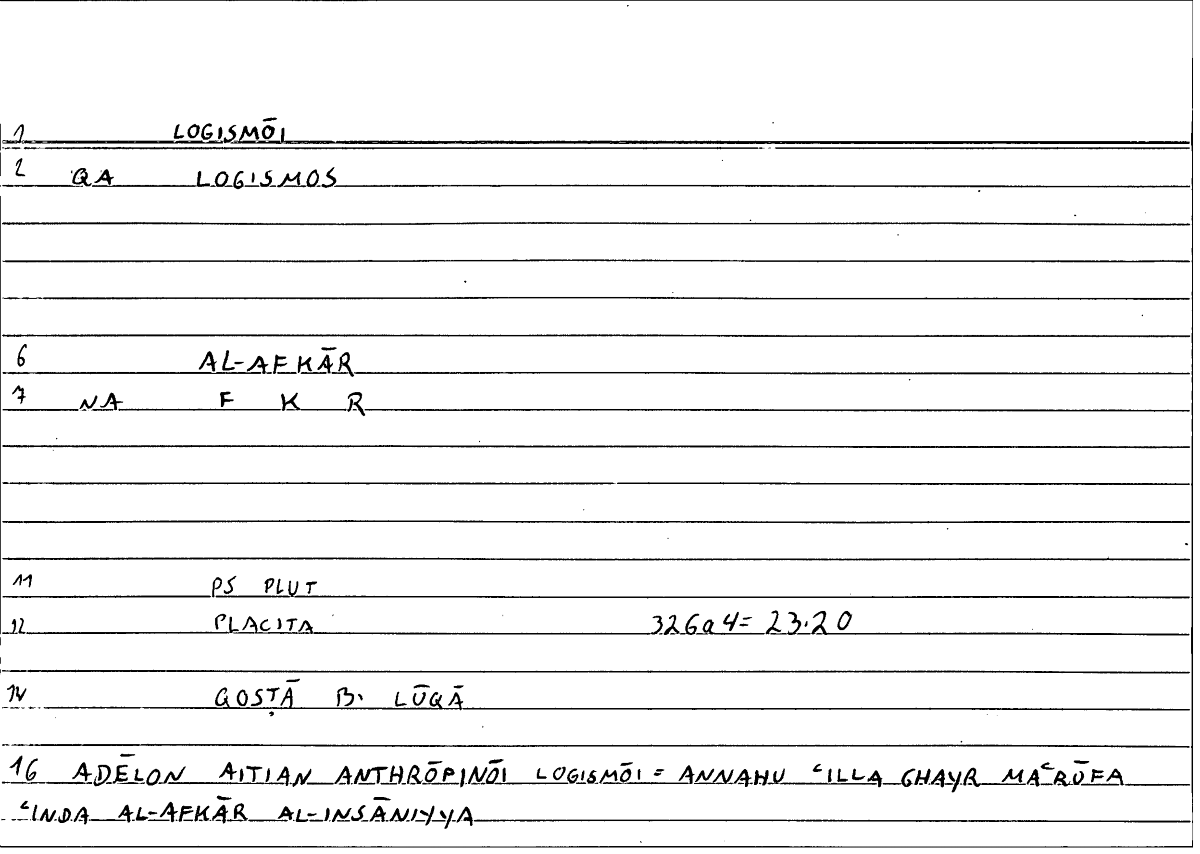 1 LOGISMŌI
2 QA LOGISMOS
6 AL-AFKĀR
7 NA F K R
11 PS PLUT
12 PLACITA 326a4= 23.20
14 QOSṬĀ B. LŪQĀ
16 ADĒLON AITIAN ANTHRŌPINŌI LOGISMŌI = ANNAHU ʿILLA GHAYR MAʿRŪFA
ʿINDA AL-AFKĀR AL-INSĀNIYYA